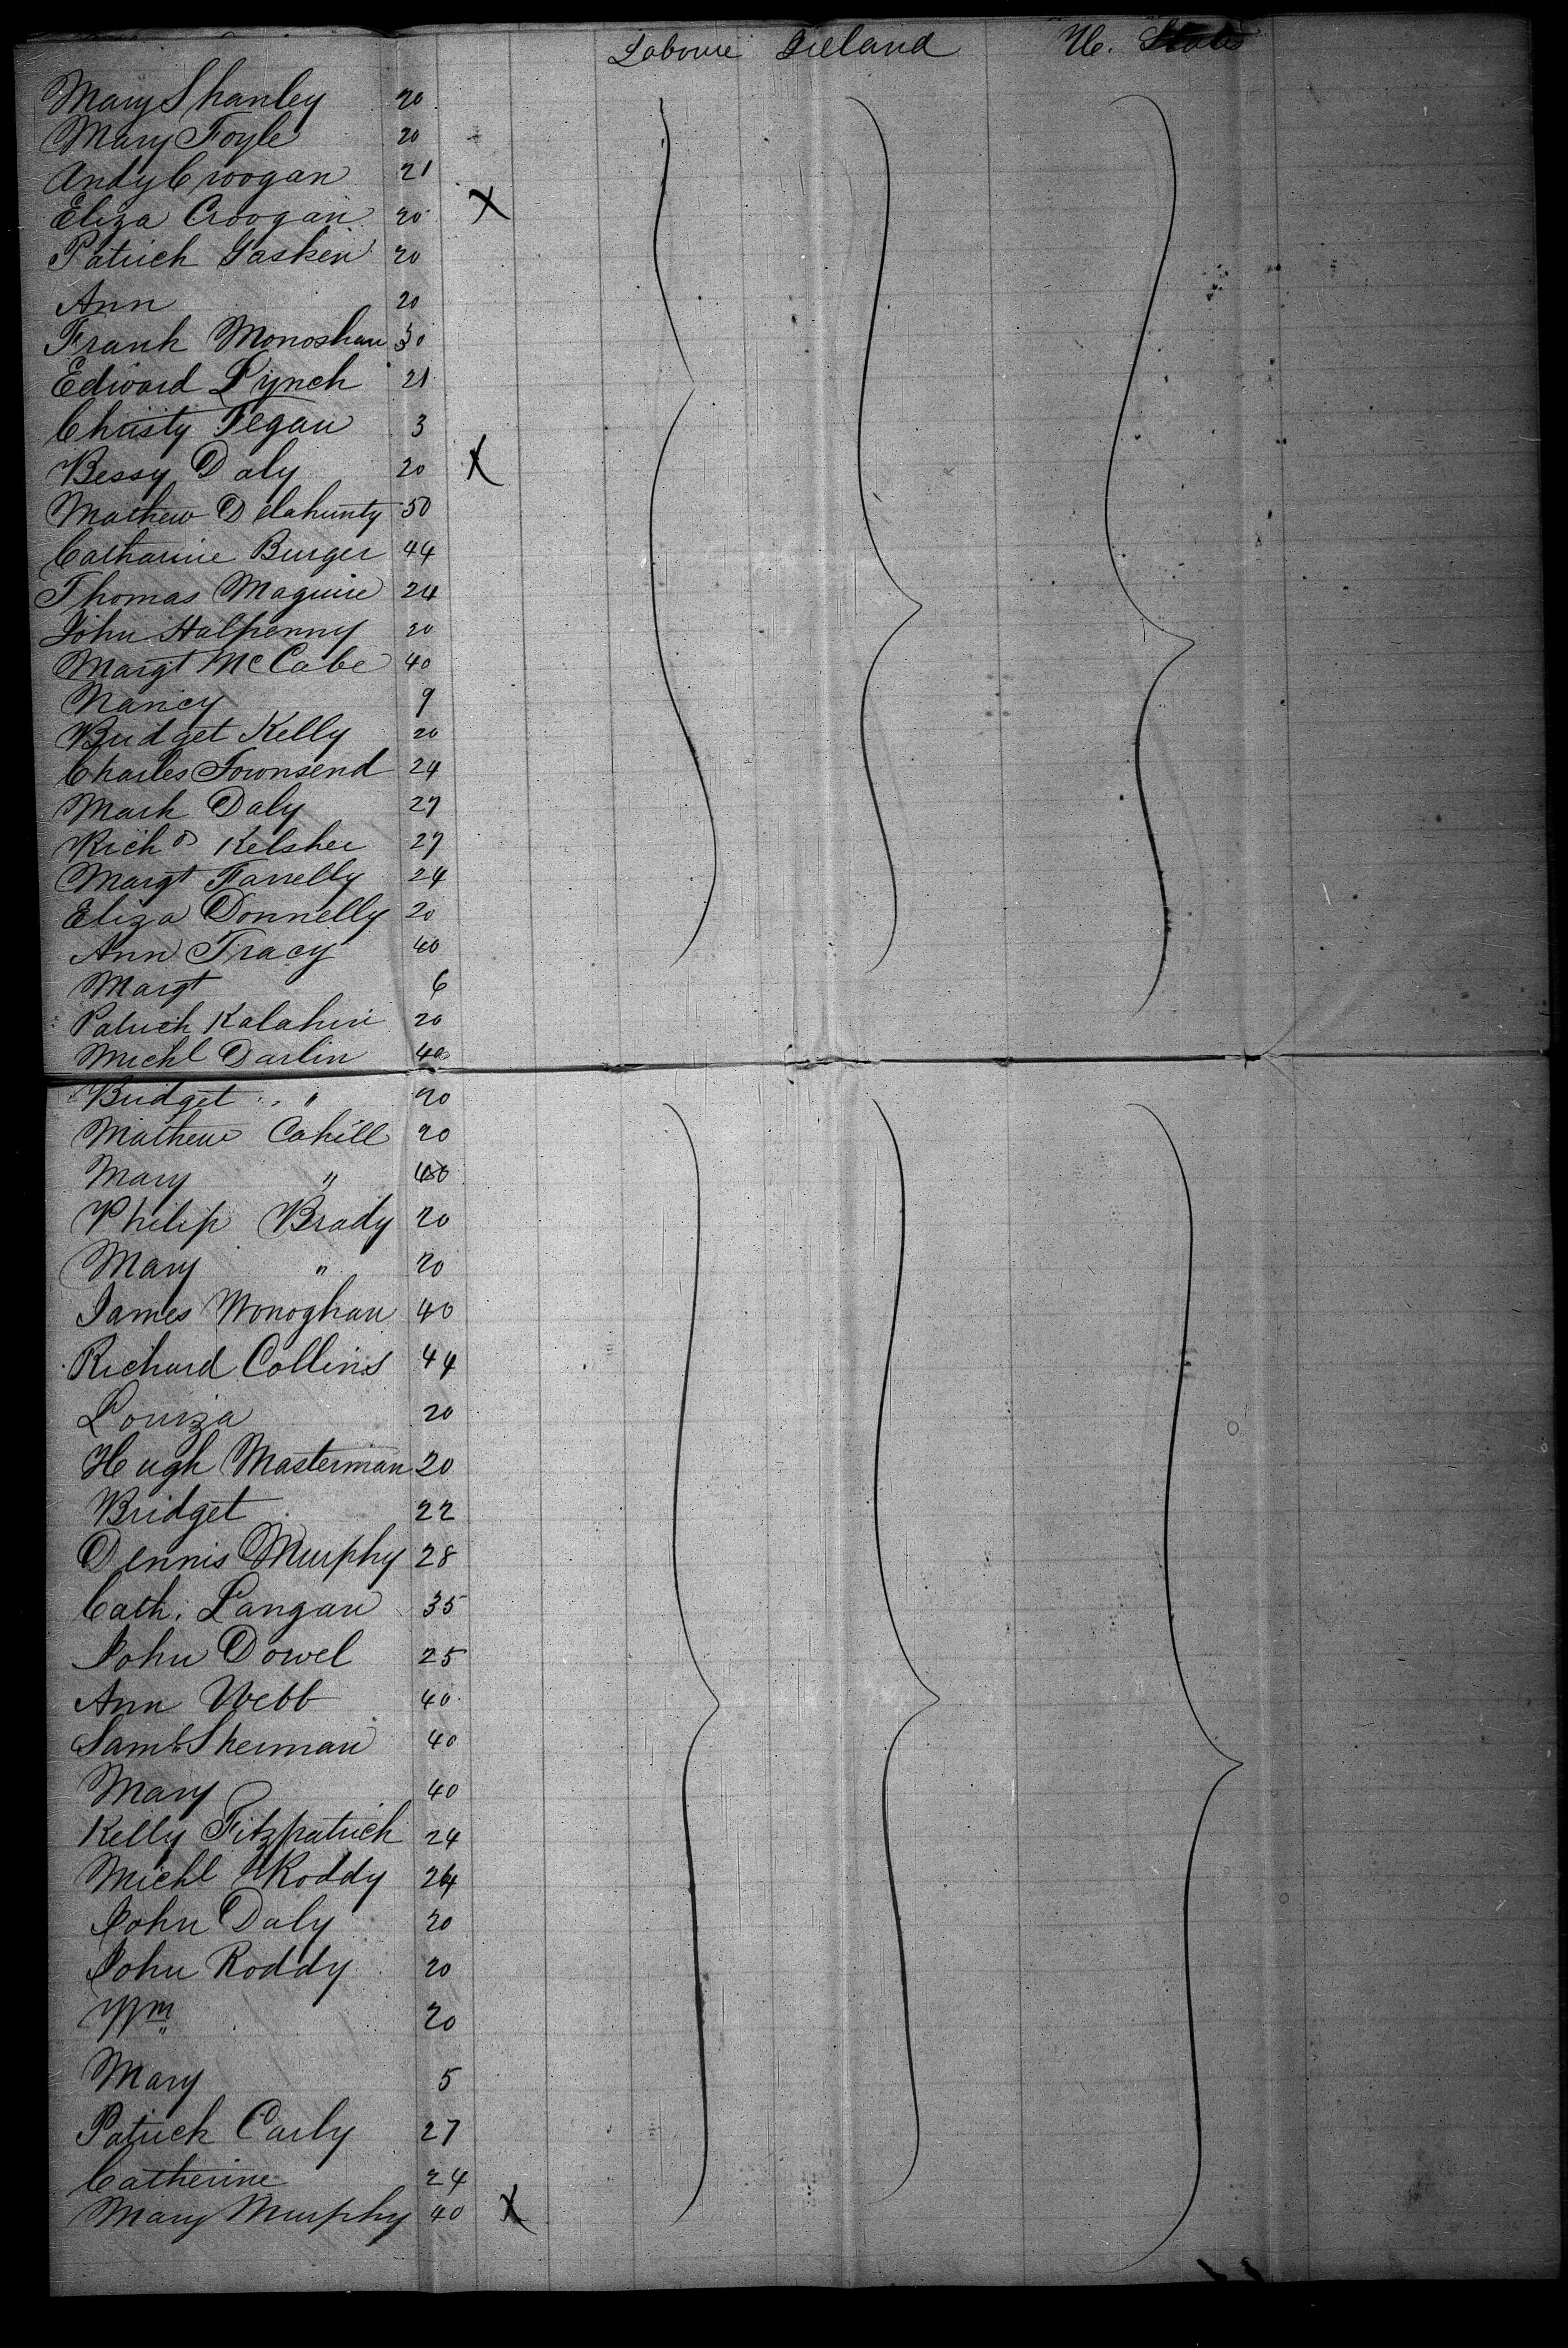 Laboure Ireland U. States
Mary Shanley 20
Mary Foyle 20
Andy Croogan 21
Eliza Croogan 20 X
Patrick Gasken 20
Ann 20
Frank Monoshan 30
Edward Lynch 21
Christy Fegan 3
Bessy Daly 20 X
Mathew Delahunty 50
Catharine Burger 44
Thomas Maguire 24
John Halpenny 20
Margt McCabe 40
Nancy 9
Bridget Kelly 20
Charles Townsend 24
Mark Daly 27
Richd Kelsher 27
Margt Farrelly 24
Eliza Donnelly 20
Ann Tracy 40
Margt 6
Patrick Kalahin 20
Michl Darlin 40
Bridget " 20
Mathew Cahill 20
Mary "
Philip Brady 20
Mary " 20
James Monoghan 40
Richard Collins 44
Louiza 20
Hugh Masterman 20
Bridget 22
Dennis Murphy 28
Cath. Langan 35
John Dowel 25
Ann Webb 40
Saml Sherman 40
Mary 40
Kelly Fitzpatrick 24
Michl Roddy 24
John Daly 20
John Roddy 20
Wm 20
Mary 5
Patrick Carly 27
Catherine 24
Mary Murphy 40 X